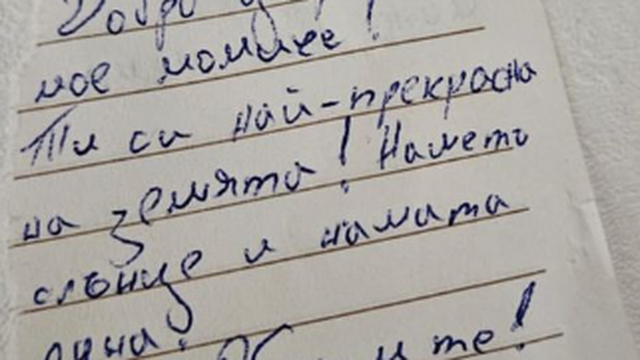 Добро
мое момиче!
Ти си най-прекрасна
на земята! Нашето
слънце и нашата
луна!